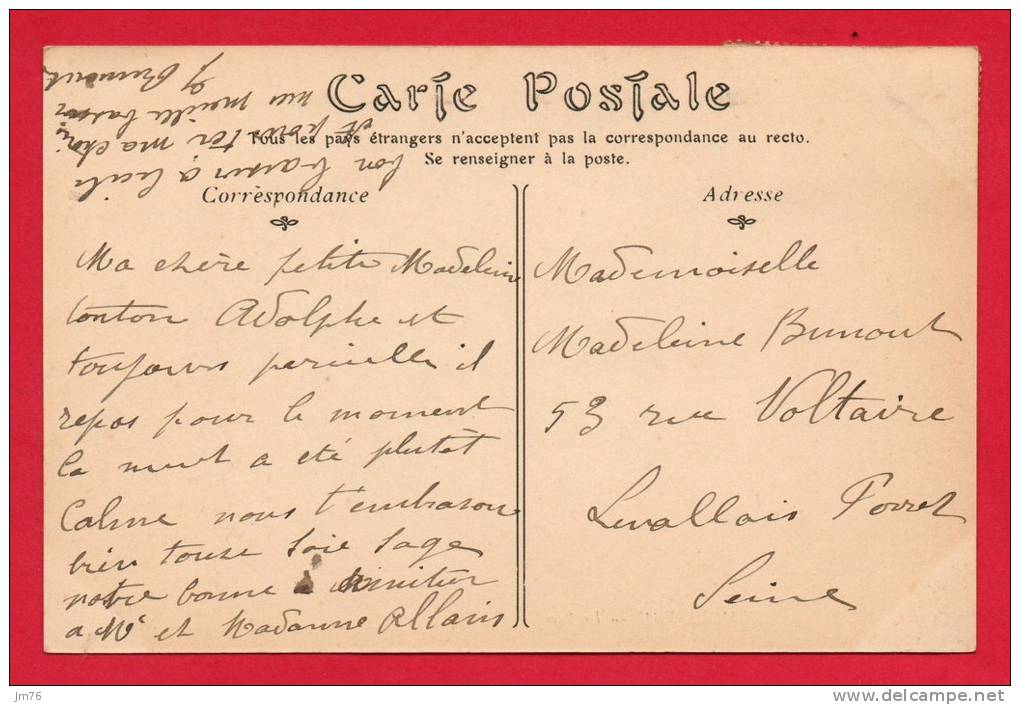 Carte Postale
Tous les pays étrangers n'acceptent pas la correspondance au recto.
Se renseigner à la poste.
Correspondance
Ma chère petite Madeleine
tonton Adolphe et
toujours pericelle il
repos pour le moment
la nuit a été plutôt
Calme nous t'embrason
bien touse soie sage
notre bonne a minitier
a Mr et Madame Allais
bon baiser a Lucile
et pour toi ma cher
Adresse
Mademoiselle
Madeleine Bunout
53 rue Voltaire
Levallois Perret
Seine
jm76
www.delcampe.net